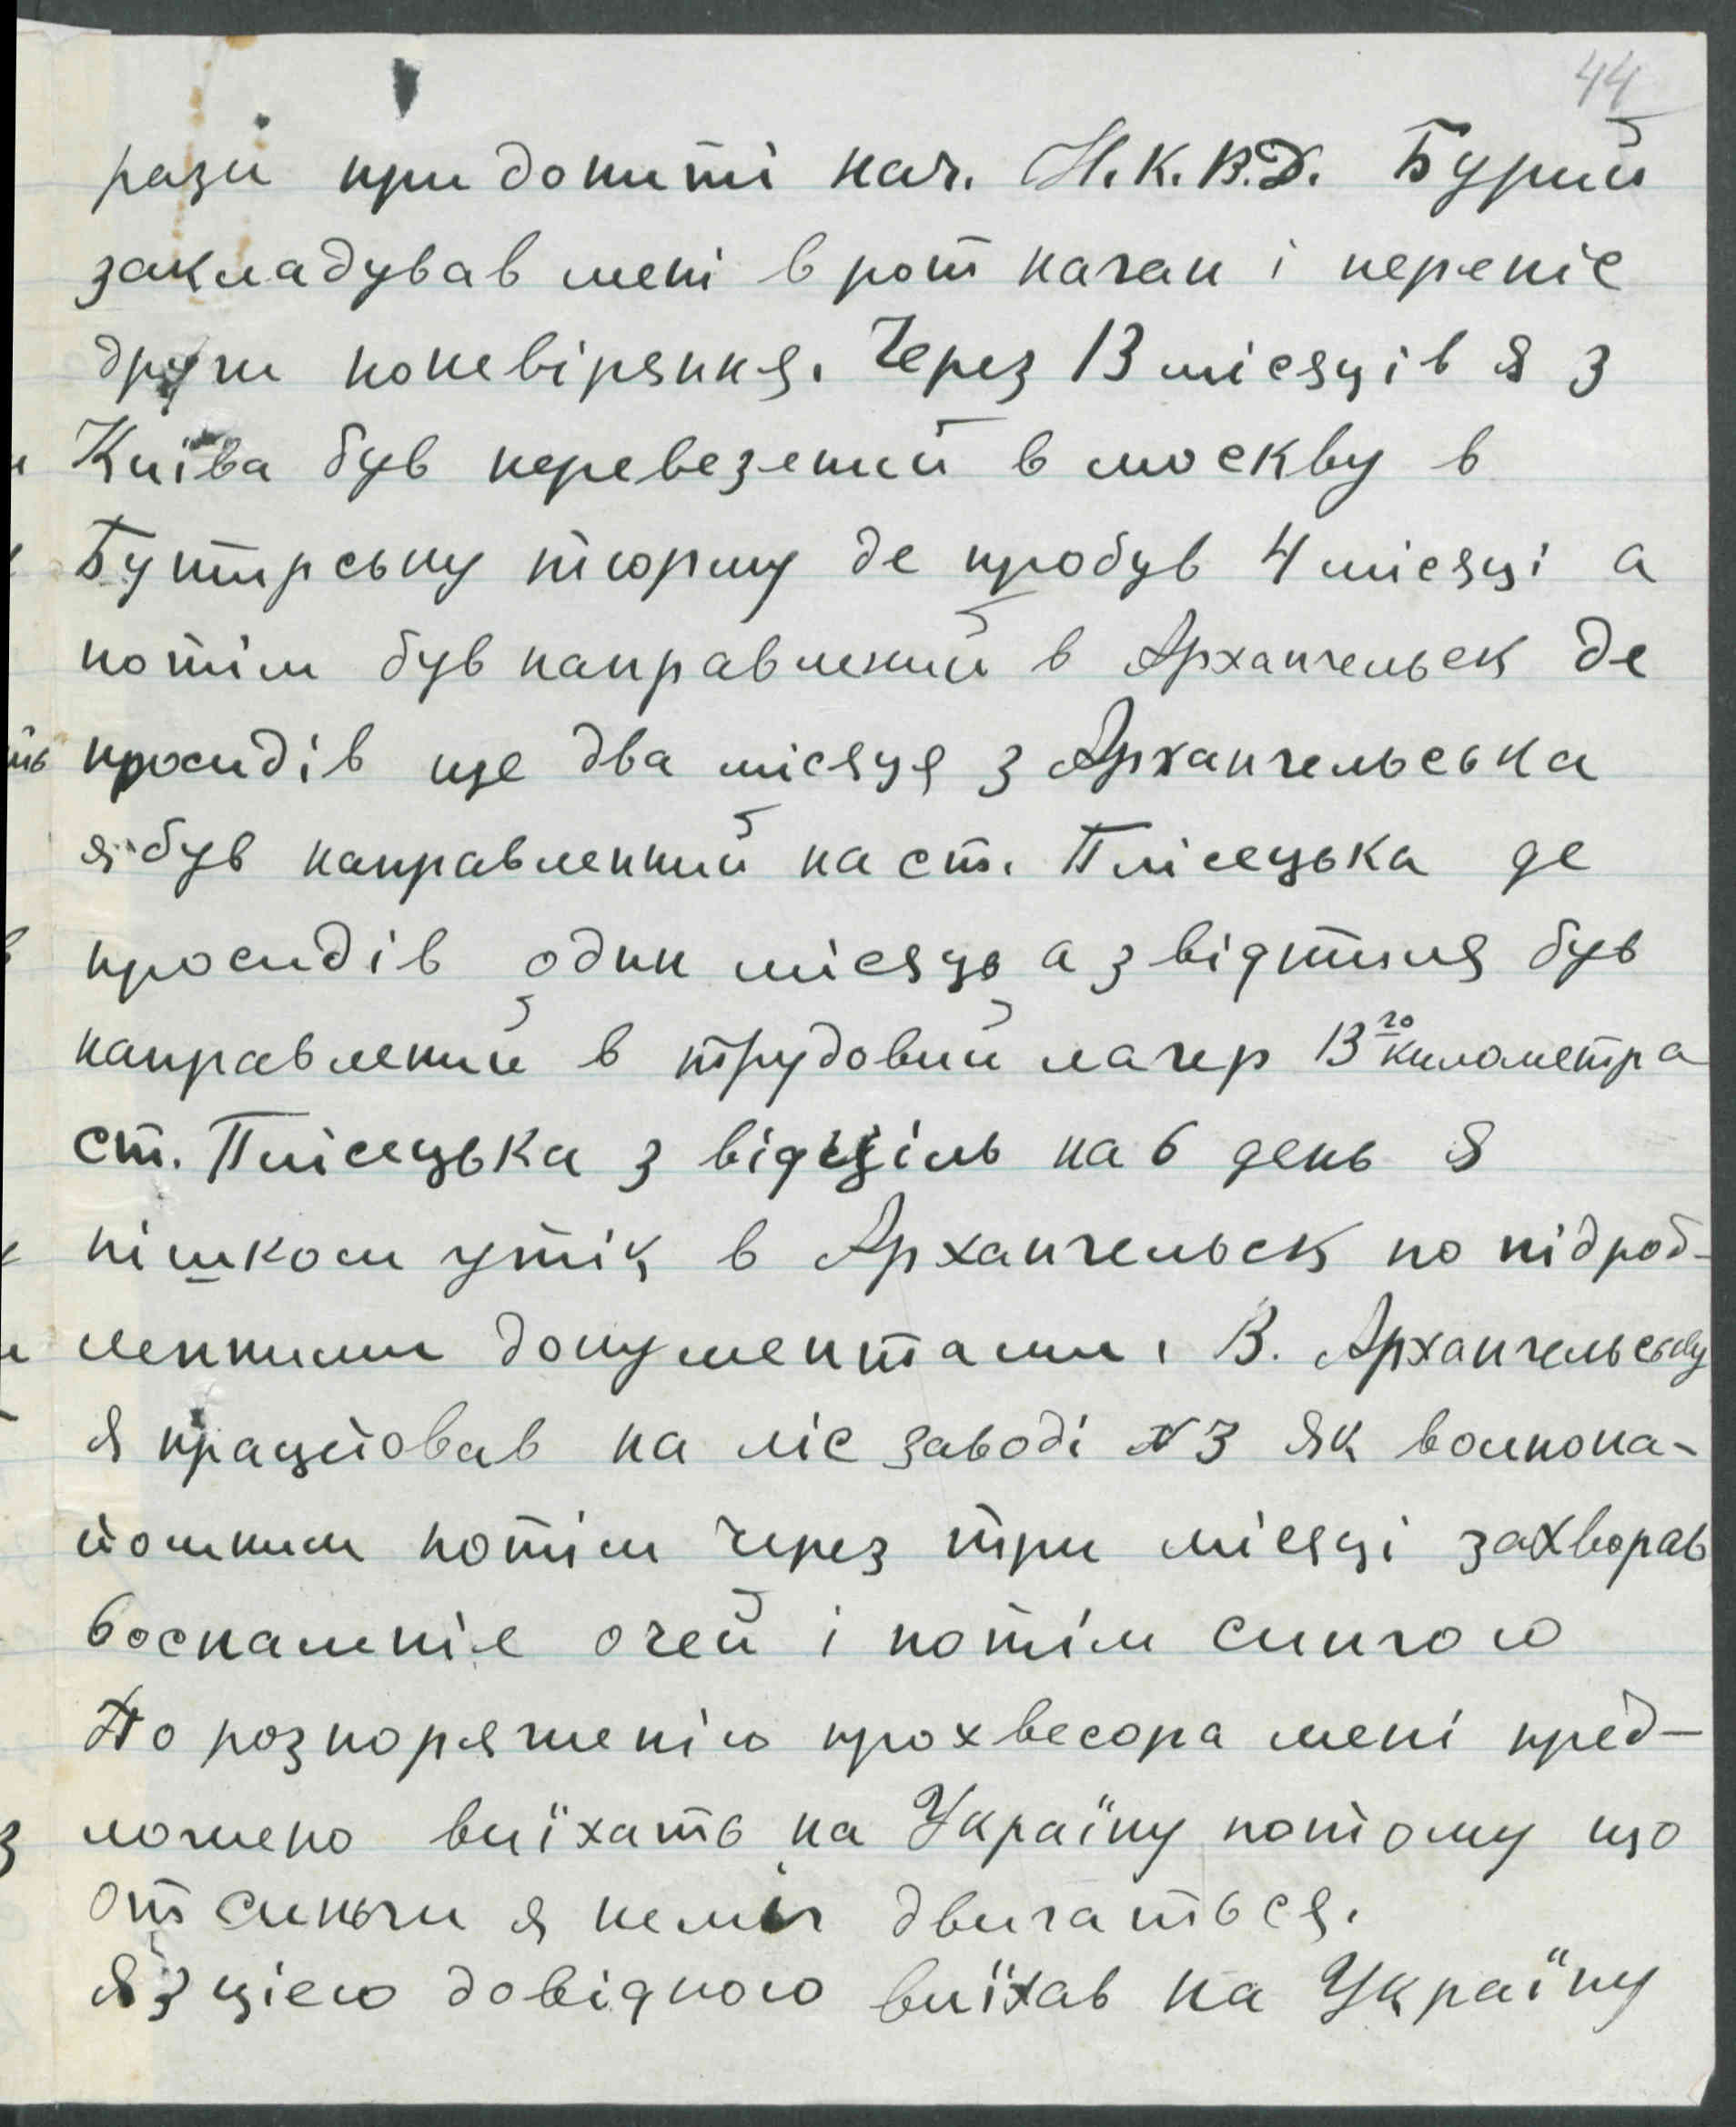 44
рази придопиті нач. Н.К.В.Д. Бурий
закладував мені в рот наган і переніс
други поневіряння. Через 13 місяців я з
Київа був перевезений в москву в
Бутирську тюрму де пробув 4 місяці а
потім був направлений в Архангельск де
просидів ще два місяця з Архангельська
я був направленний на ст. Плісецька де
просидів один місяць а звідтиля був
направлений в трудовий лагер 13го километра
ст. Плісецька з відціль на 6 день я
пішком утік в Архангельск по підроб-
ленними документами. В. Архангельську
я працював на ліс заводі №3 як вольнона-
йомним потім через три місяці захворав
воспаленіє очей і потім сингою
По розпоряженію прохвесора мені пред-
ложено виїхать на Україну потому що
от синьги я неміг двигаться.
я з цією довідкою виїхав на Україну